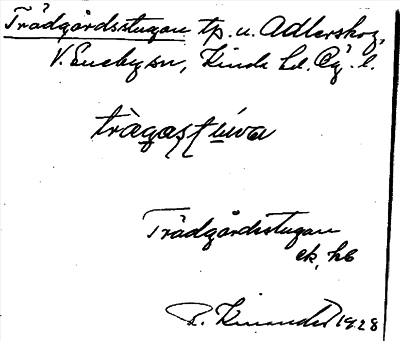 Trädgårdsstugan tp. u. Adlerskog,
V. Eneby sn, Kinda hd. Ög. l.
trä̀gaſtúva
Trädgårdsstugan
ek, kb
R. Kinander 1928